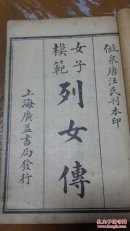 倣泉唐汪氏刊本印
女子
模範
列女傳
上海廣益書局發行